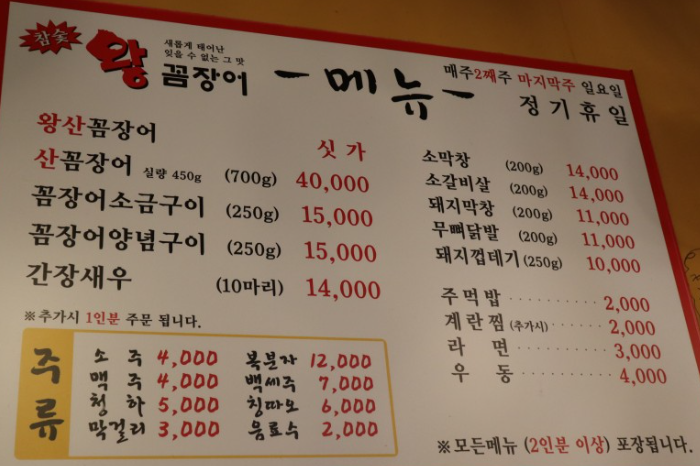 참숯
새롭게 태어난
잊을 수 없는 그 맛
왕꼼장어
-메뉴-
매주2째주 마지막주 일요일
정기휴일
왕산꼼장어 싯가
산꼼장어 실량 450g (700g) 40,000
꼼장어소금구이 (250g) 15,000
꼼장어양념구이 (250g) 15,000
간장새우 (10마리) 14,000
※추가시 1인분 주문 됩니다.
주류
소주 4,000 복분자 12,000
맥주 4,000 백세주 7,000
청하 5,000 칭따오 6,000
막걸리 3,000 음료수 2,000
소막창 (200g) 14,000
소갈비살 (200g) 14,000
돼지막창 (200g) 11,000
무뼈닭발 (200g) 11,000
돼지껍데기 (250g) 10,000
주먹밥 ·········· 2,000
계란찜 (추가시) ····· 2,000
라면 ·········· 3,000
우동 ·········· 4,000
※모든메뉴 (2인분 이상) 포장됩니다.